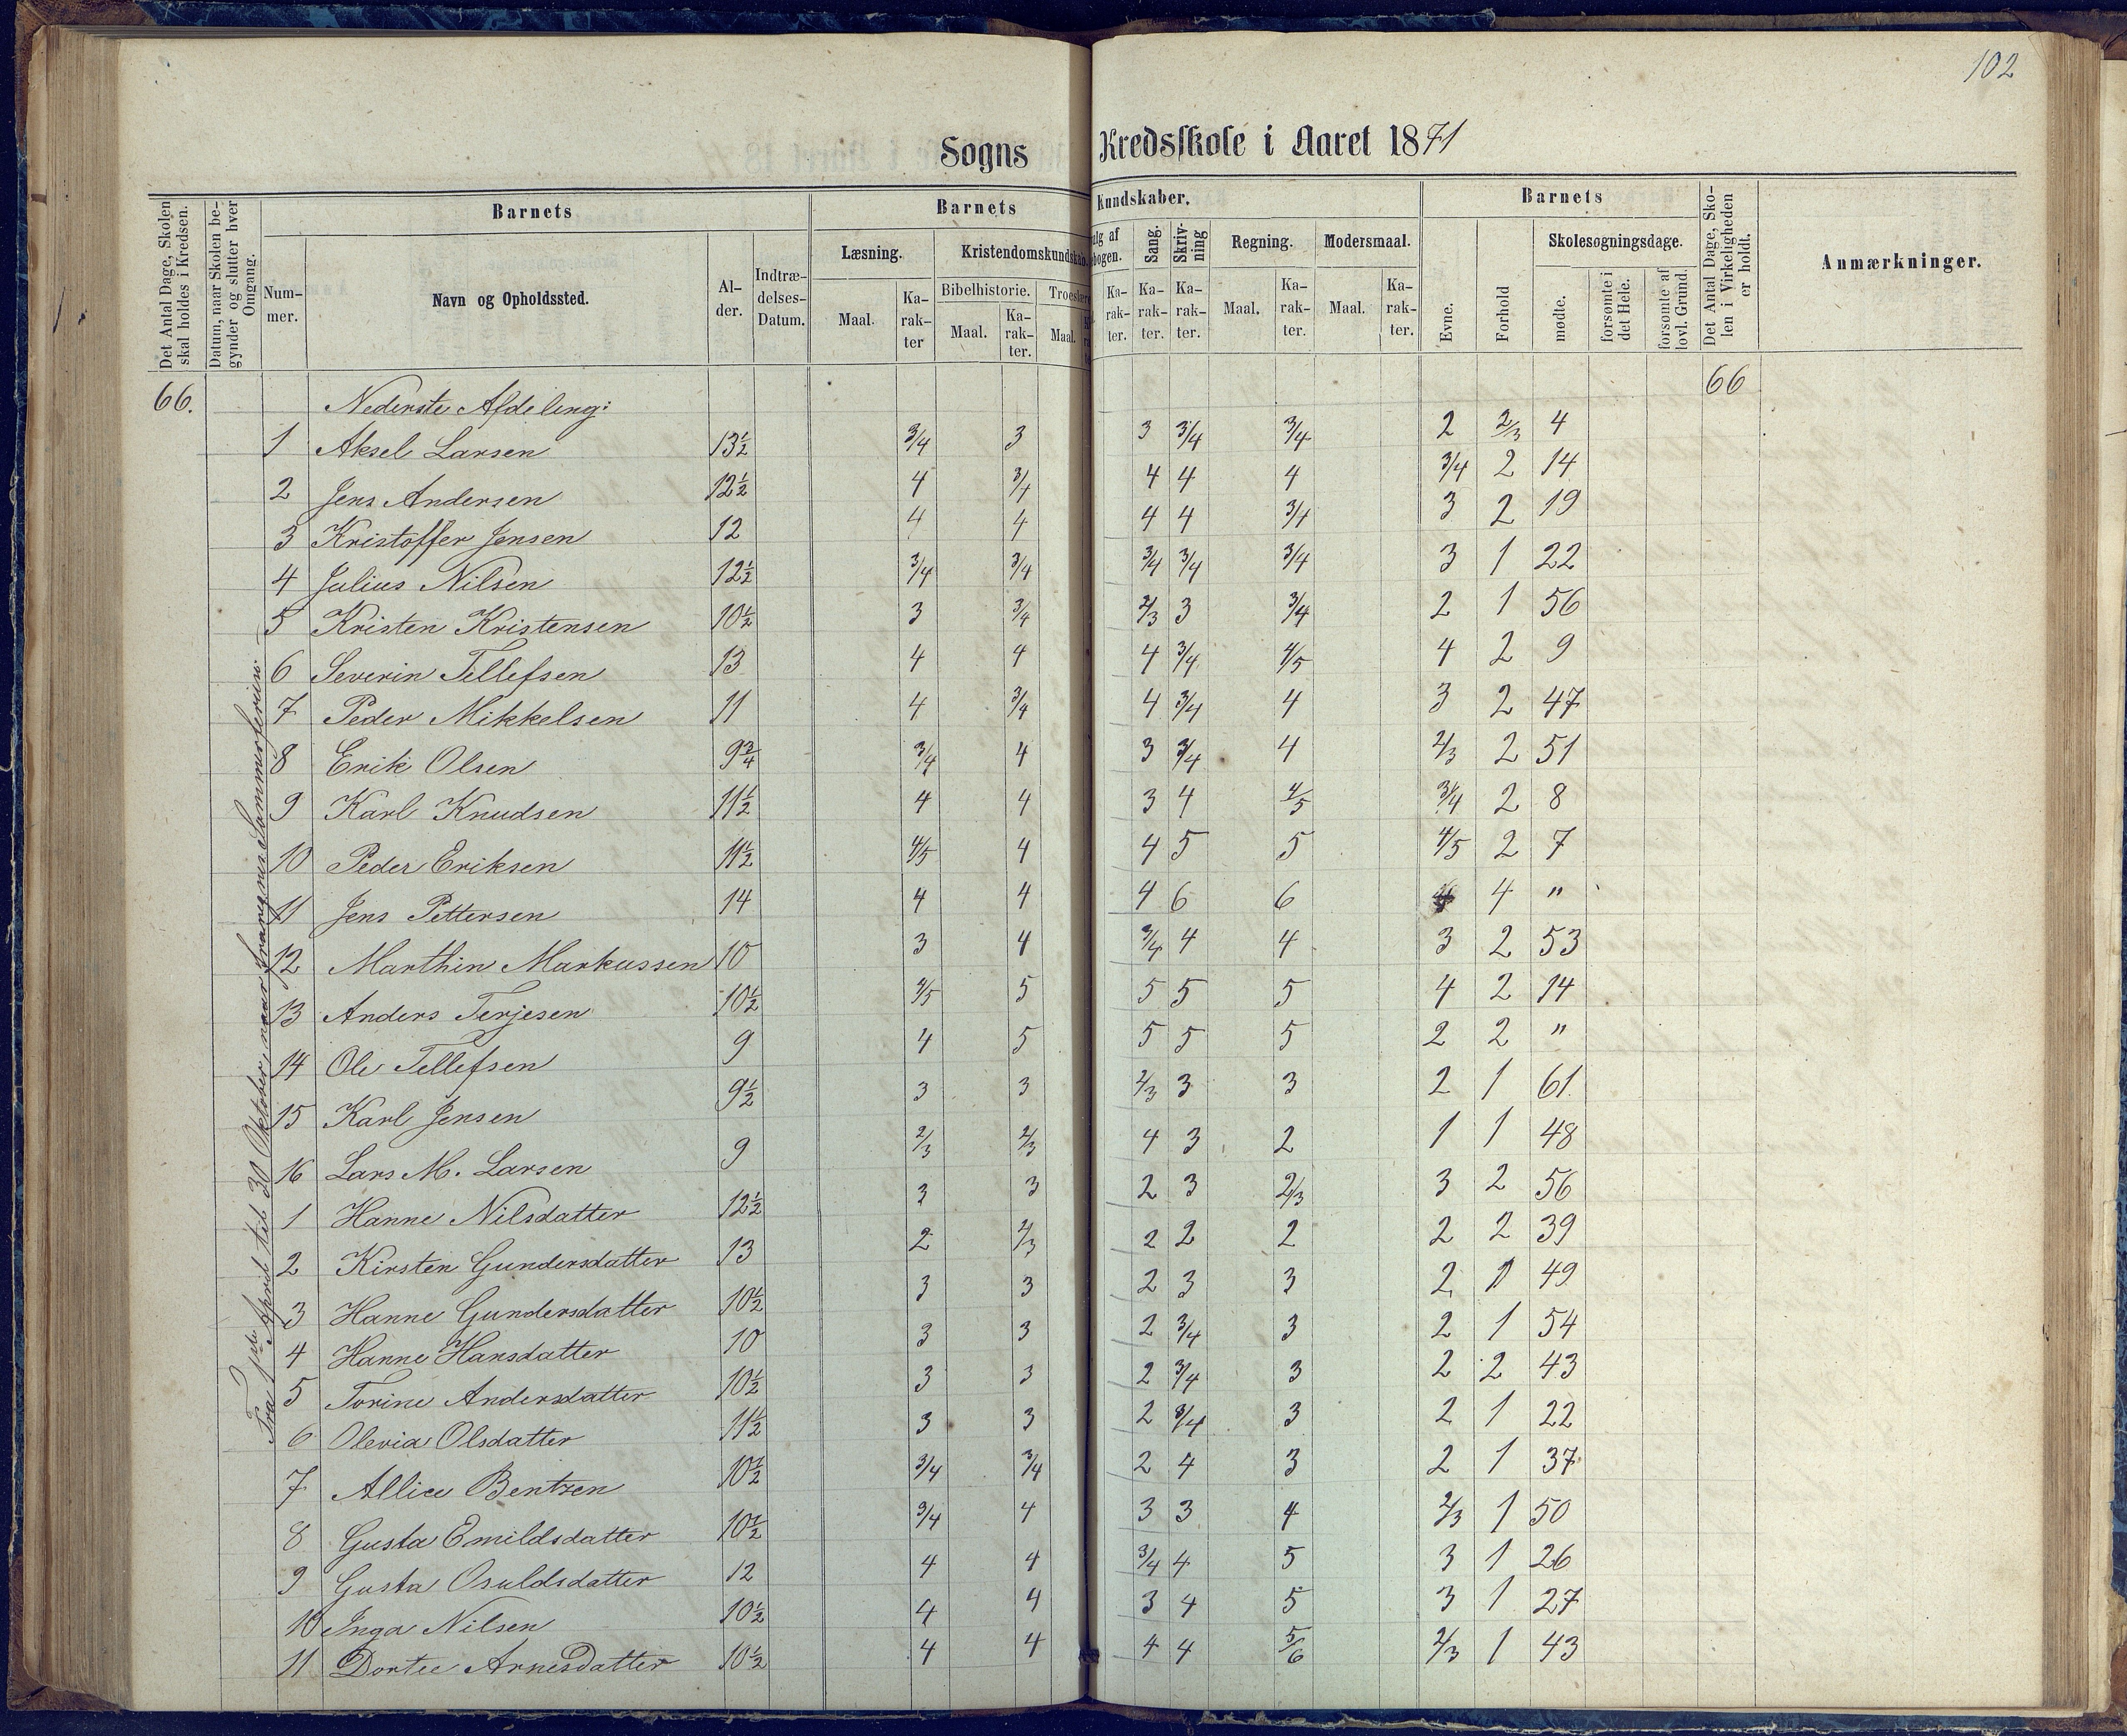 102
Sogns Kredsskole i Aaret 1871
Det Antal Dage, Skolen skal holdes i Kredsen.
Datum, naar Skolen begynder og slutter hver Omgang.
Barnets
Nummer.
Navn og Opholdssted.
Alder.
Indtrædelses-Datum.
Barnets Kundskaber.
Læsning.
Maal.
Karakter
Kristendomskundskab.
Bibelhistorie.
Maal.
Karakter.
Troeslære
Maal.
alg af
bogen.
Karakter.
Sang.
Karakter.
Skrivning
Karakter.
Regning.
Maal.
Karakter.
Modersmaal.
Maal.
Karakter.
Barnets
Evne.
Forhold
Skolesøgningsdage.
mødte.
forsømte i det Hele.
forsømte af lovl. Grund.
Det Antal Dage, Skolen i Virkeligheden er holdt.
Anmærkninger.
66. Nederste Afdeling: 66
Fra 1ste April til 30 Oktober, naar fraregnes Sommerferien.
1 Aksel Larsen 13½ 3/4 3 3 3/4 3/4 2 2/3 4
2 Jens Andersen 12½ 4 3/4 4 4 4 3/4 2 14
3 Kristoffer Jensen 12 4 4 4 4 3/4 3 2 19
4 Julius Nilsen 12½ 3/4 3/4 3/4 3/4 3/4 3 1 22
5 Kristen Kristensen 10½ 3 3/4 2/3 3 3/4 2 1 56
6 Severin Tellefsen 13 4 4 4 3/4 4/5 4 2 9
7 Peder Mikkelsen 11 4 3/4 4 3/4 4 3 2 47
8 Erik Olsen 9¾ 3/4 4 3 3/4 4 2/3 2 51
9 Karl Knudsen 11½ 4 4 3 4 4/5 3/4 2 8
10 Peder Eriksen 11½ 4/5 4 4 5 5 4/5 2 7
11 Jens Pettersen 14 4 4 4 6 6 4 "
12 Marthin Markussen 10 3 4 3/4 4 4 3 2 53
13 Anders Terjesen 10½ 4/5 5 5 5 5 4 2 14
14 Ole Tellefsen 9 4 5 5 5 5 2 2 "
15 Karl Jensen 9½ 3 3 2/3 3 3 2 1 61
16 Lars M. Larsen 9 2/3 2/3 4 3 2 1 1 48
1 Hanne Nilsdatter 12½ 3 3 2 3 2/3 3 2 56
2 Kirsten Gundersdatter 13 2 2/3 2 2 2 2 2 39
3 Hanne Gundersdatter 10½ 3 3 2 3 3 2 1 49
4 Hanne Hansdatter 10 3 3 2 3/4 3 2 1 54
5 Torine Andersdatter 10½ 3 3 2 3/4 3 2 2 43
6 Olevia Olsdatter 11½ 3 3 2 3/4 3 2 1 22
7 Allice Bentzen 10½ 3/4 3/4 2 4 3 2 1 37
8 Gusta Emildsdatter 10½ 3/4 4 3 3 4 2/3 1 50
9 Gusta Osuldsdatter 12 4 4 3/4 4 5 3 1 26
10 Inga Nilsen 10½ 4 4 3 4 5 3 1 27
11 Dortee Arnesdatter 10½ 4 4 4 4 5/6 2/3 1 43